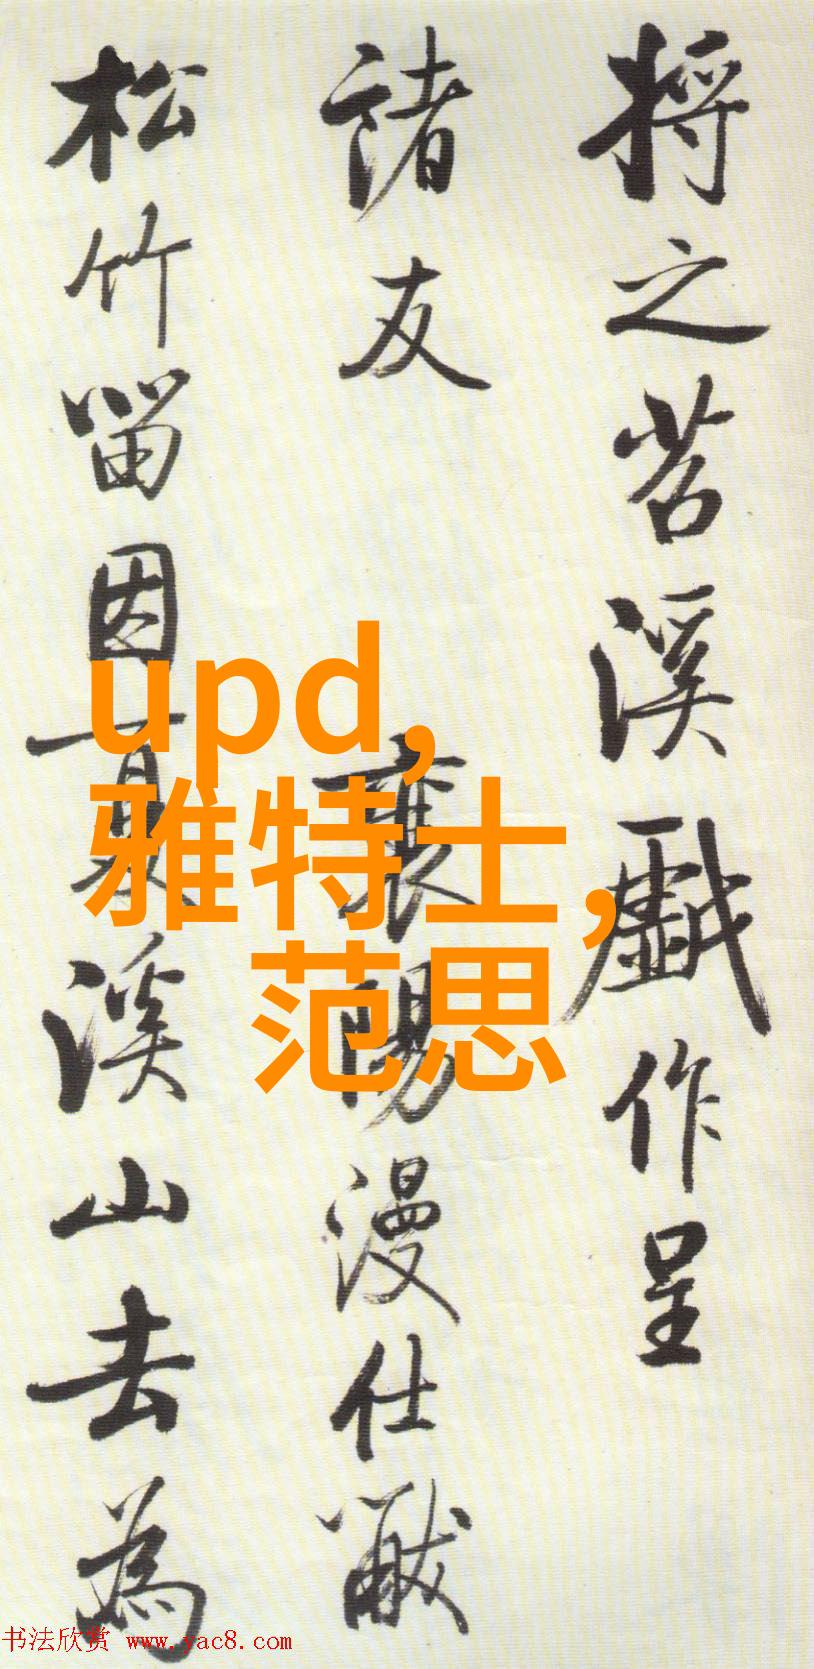 将之苕溪戲作呈
諸友
襄陽漫仕黻
松竹留因夏溪山去為
upd,
雅特士,
范思
书法欣赏 www.yac8.com